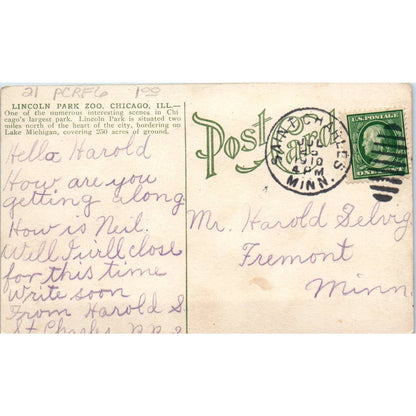 21 PCRF6 1.00
LINCOLN PARK ZOO, CHICAGO, ILL.—
One of the numerous interesting scenes in Chi
cago's largest park. Lincoln Park is situated two
miles north of the heart of the city, bordering on
Lake Michigan, covering 250 acres of ground.
Hello Harold
How are you
getting along
How is Neil.
Well I will close
for this time
Write soon
From Harold S.
St Charles
Post Card
SAINT CHARLES
1910
4 PM
MINN.
U.S. POSTAGE
Mr. Harold Selvig
Fremont
Minn.